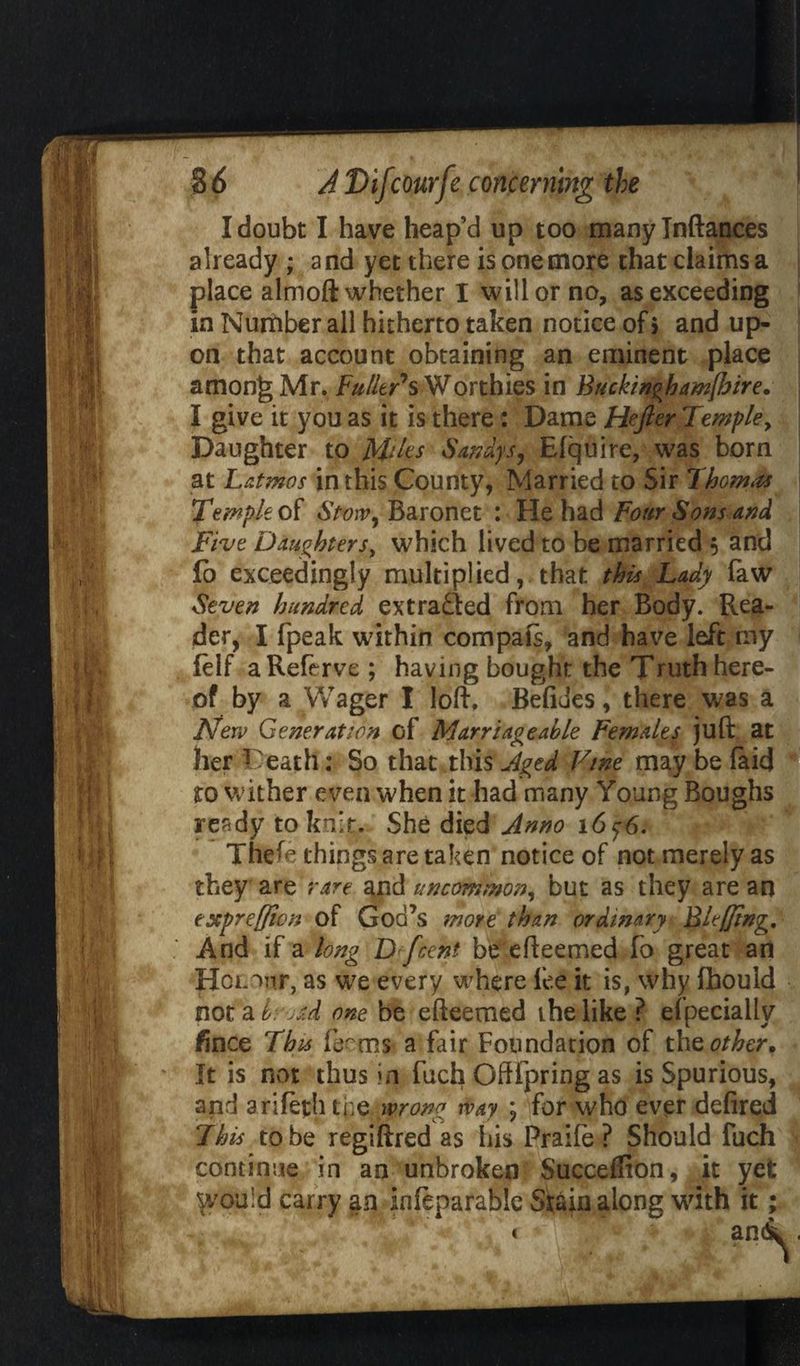 86 A Diſcourſe concerning the
I doubt I have heap'd up too many Inſtances
already ; and yet there is one more that claims a
place almoſt whether I will or no, as exceeding
in Number all hitherto taken notice of ; and up-
on that account obtaining an eminent place
among Mr. Fuller's Worthies in Buckinghamſhire.
I give it you as it is there : Dame Heſter Temple,
Daughter to Miles Sandys, Eſquire, was born
at Latmos in this County, Married to Sir Thomas
Temple of Stow, Baronet : He had Four Sons and
Five Daughters, which lived to be married ; and
ſo exceedingly multiplied, that this Lady ſaw
Seven hundred extracted from her Body. Rea-
der, I ſpeak within compaſs, and have left my
ſelf a Reſerve ; having bought the Truth here-
of by a Wager I loſt. Beſides, there was a
New Generation of Marriageable Females juſt at
her Death : So that this Aged Vine may be ſaid
to wither even when it had many Young Boughs
ready to knit. She died Anno 1656.
Theſe things are taken notice of not merely as
they are rare and uncommon, but as they are an
expreſſion of God's more than ordinary Bleſſing.
And if a long Deſcent be eſteemed ſo great an
Honour, as we every where ſee it is, why ſhould
not a broad one be eſteemed the like ? eſpecially
ſince This ſeems a fair Foundation of the other.
It is not thus in ſuch Offſpring as is Spurious,
and ariſeth the wrong way ; for who ever deſired
This to be regiſtred as his Praiſe ? Should ſuch
continue in an unbroken Succeſſion, it yet
would carry an inſeparable Stain along with it ;
and